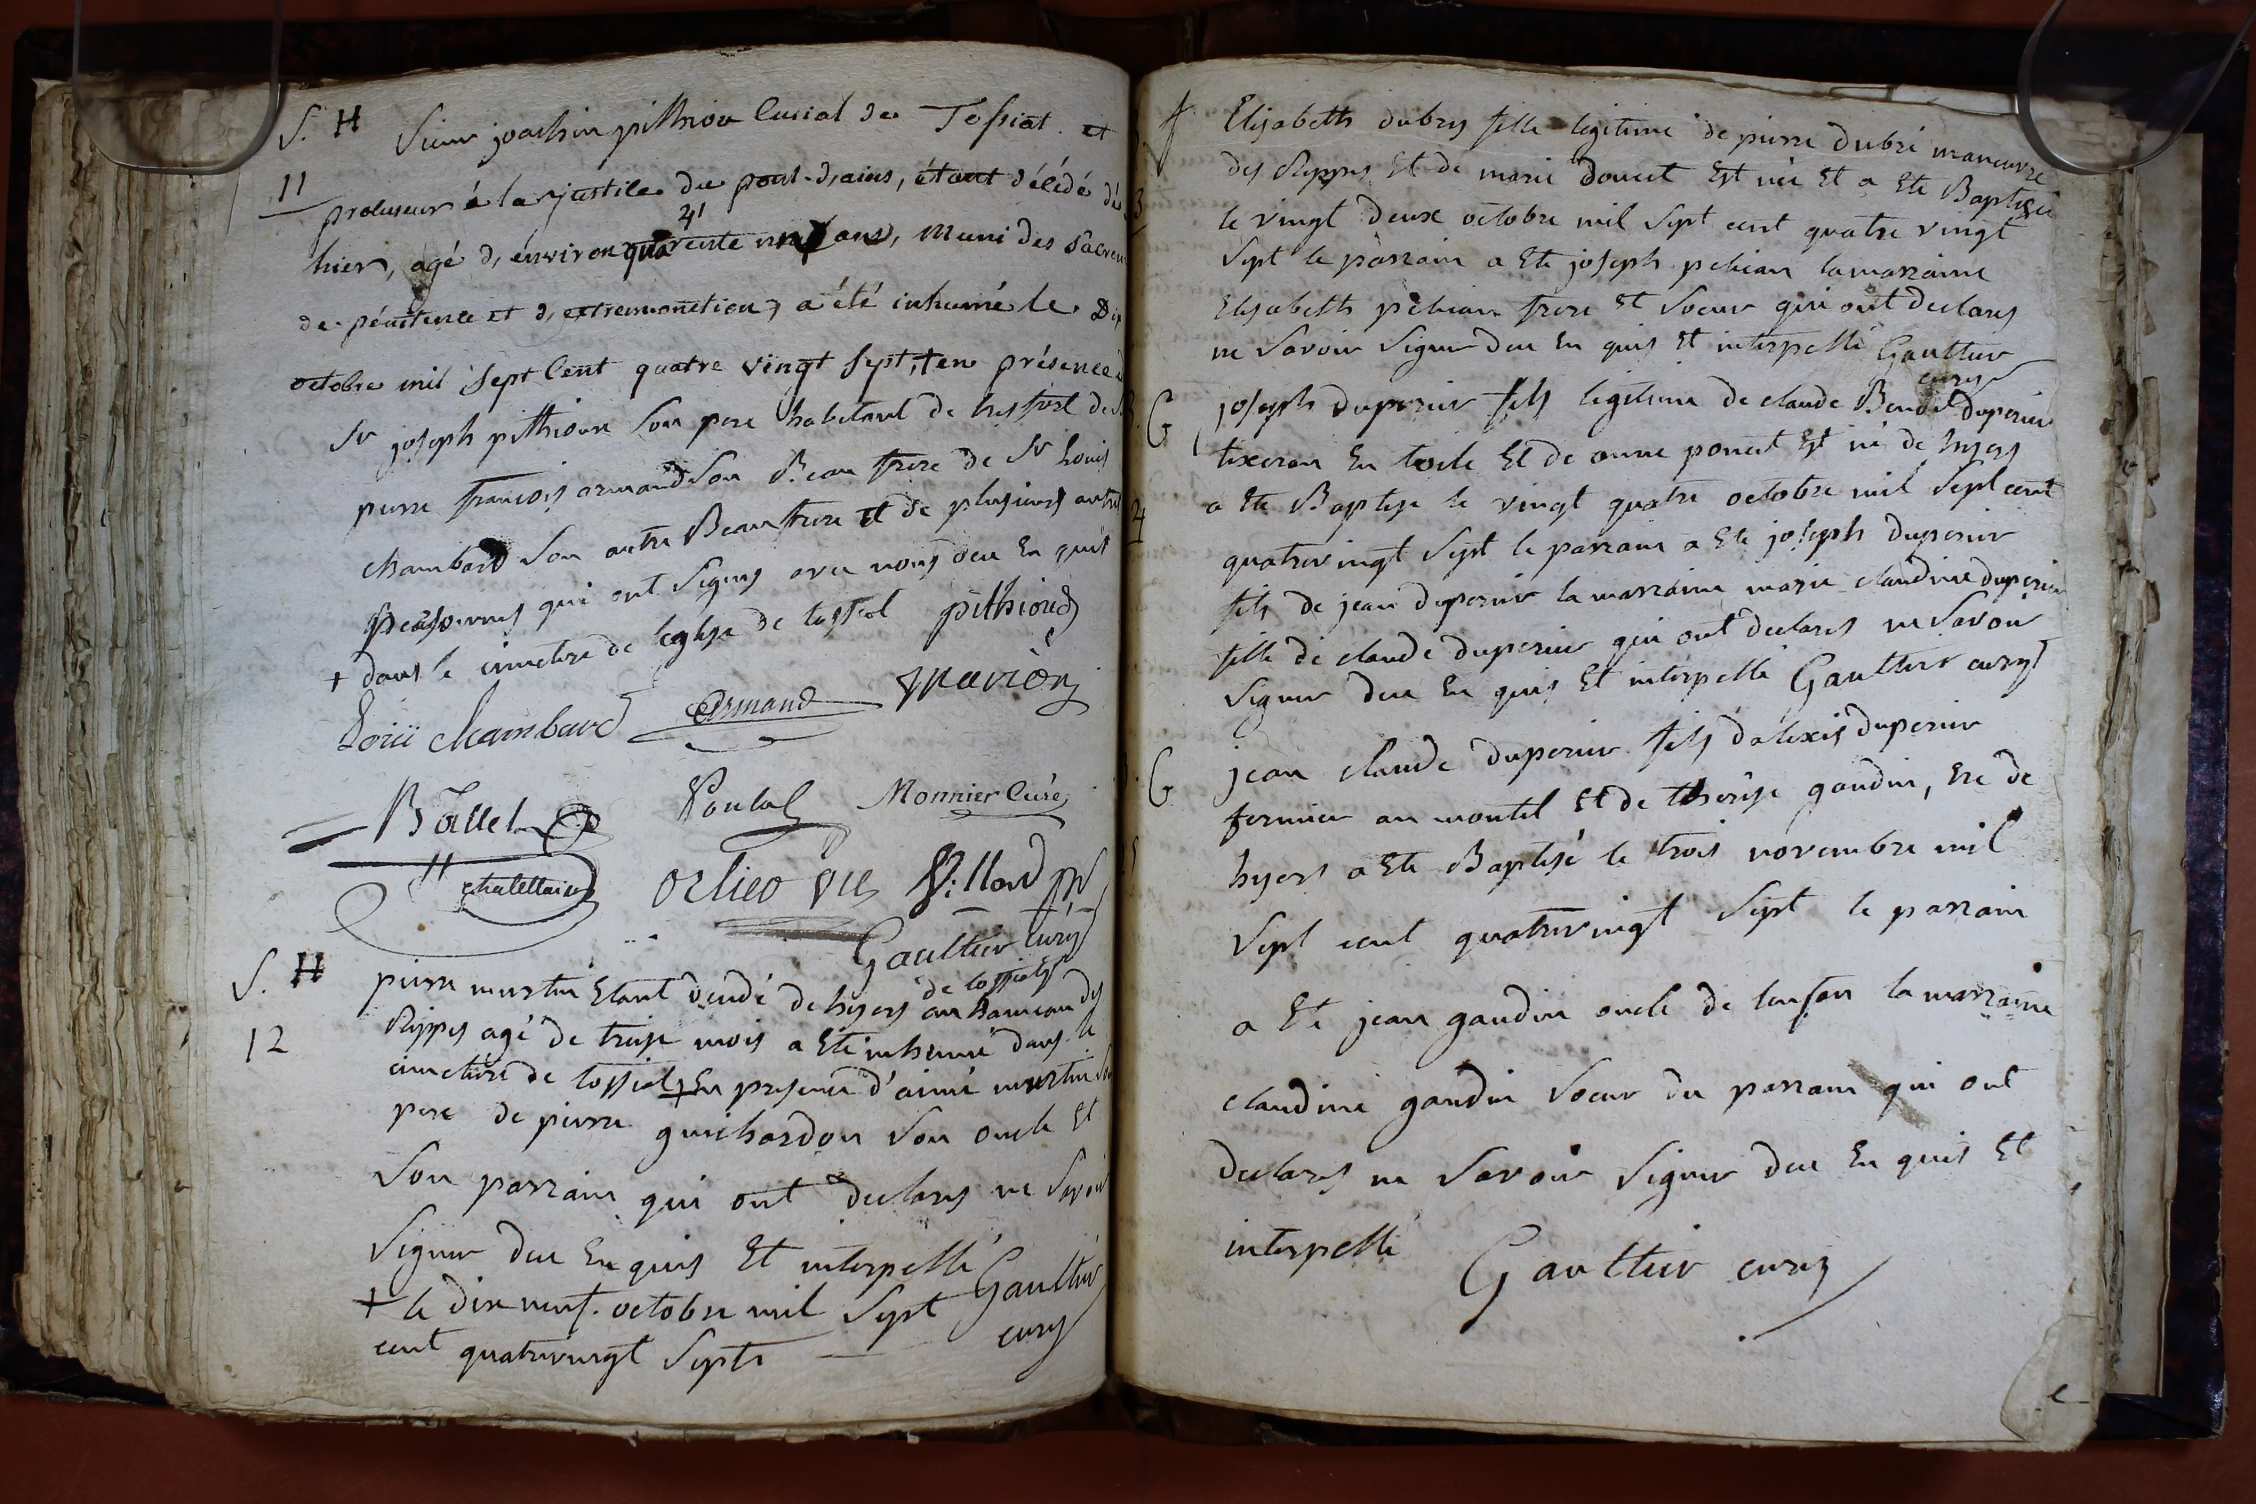 S. H Sieur joachin pithiou curial de Tossiat et
11 procureur à la justice du pont-d'ains, étant décédé d'
hier, agé d'environ quarente un ans, muni des sacrem
41
de pénitence et d'extremonction, a été inhumé le Dix
octobre mil sept cent quatre vingt sept, + en présence d
Sr joseph pithioux son pere habitant de
pierre francois armand son Beau frere de Sr Louis
chambard son autre Beau frere et de plusieurs autres
personnes qui ont signés avec nous de ce Enquis
+ dans le cimetiere de leglise de tossiat pithioud
Loüi chambard Armand
Ballet Poulal Monnier Curé
chatellain orlier Villard
Gaultier curé
S. H pierre murtin Etant décédé de hyers au hameau des
de tossiat
12 Rippes agé de treise mois a Eté inhumé dans le
cimetiere de tossiat + En presence d'aimé murtin son
pere de pierre guichardon son oncle Et
son parrain qui ont declarés ne savoir
signer de ce Enquis Et interpellé
+ le dix neuf octobre mil sept Gaultier
cent quatrevingt sept curé
f Elisabeth dubry fille legitime de pierre dubri maneuvre
des Rippes Et de marie doucet Est née Et a Eté Baptisée
3 le vingt deux octobre mil sept cent quatre vingt
sept le parrain a Eté joseph pehian la marraine
Elisabeth pehian frere Et soeur qui ont declarés
ne savoir signer de ce Enquis Et interpellé Gaultier
curé
G joseph duperier fils legitime de claude Benoit duperier
tixeran En toile Et de anne poncet Est né de hyers
4 a Eté Baptise le vingt quatre octobre mil sept cent
quatrevingt sept le parrain a Eté joseph duperier
fils de jean duperier la marraine marie claudine duperier
fille de claude duperier qui ont declarés ne savoir
signer de ce Enquis Et interpellé Gaultier curé
G jean claude duperier fils d'alexis duperier
fermier au montel Et de therese gaudin, né de
5 hyers a Eté Baptisé le trois novembre mil
sept cent quatrevingt sept le parrain
a Eté jean gaudin oncle de lenfan la marraine
claudine gaudin soeur du parrain qui ont
declarés ne savoir signer de ce Enquis Et
interpellé Gaultier curé